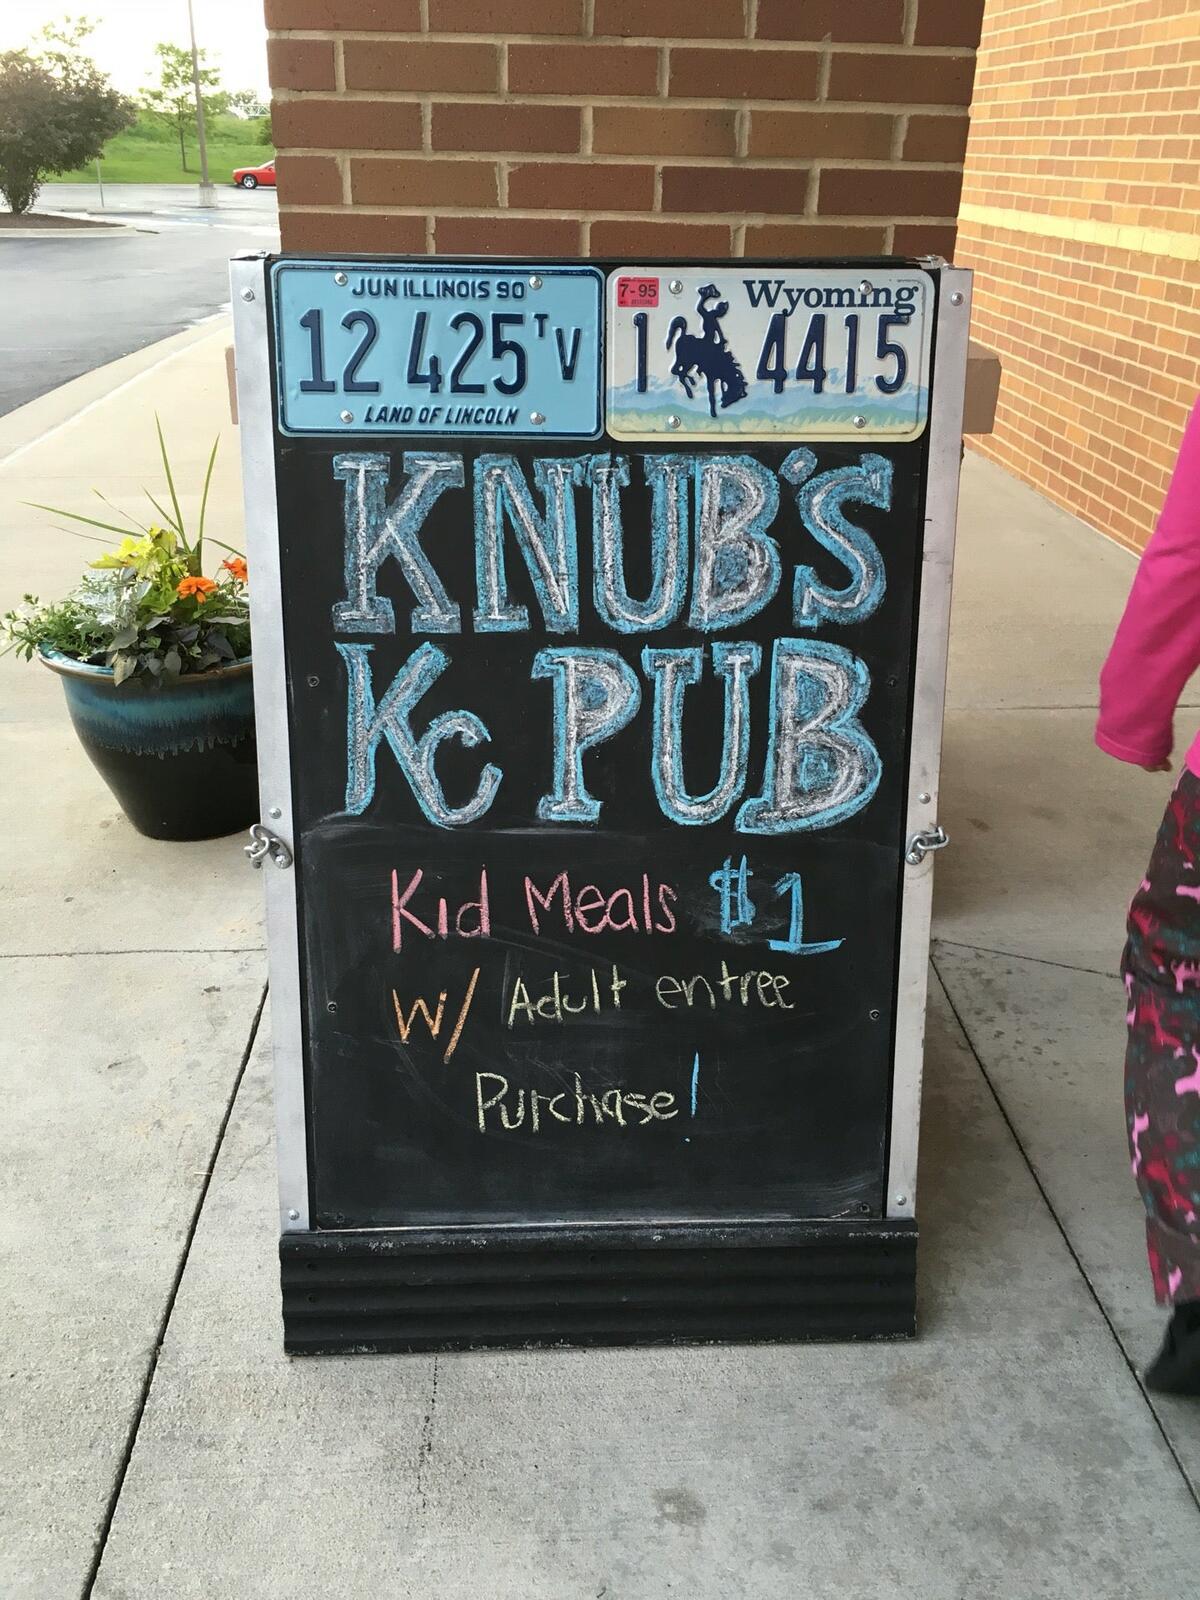 JUN ILLINOIS 90
12 425 TV
LAND OF LINCOLN
7-95
Wyoming
1 4415
KNUB'S
Kc PUB
Kid Meals $1
W/ Adult entree
Purchase!